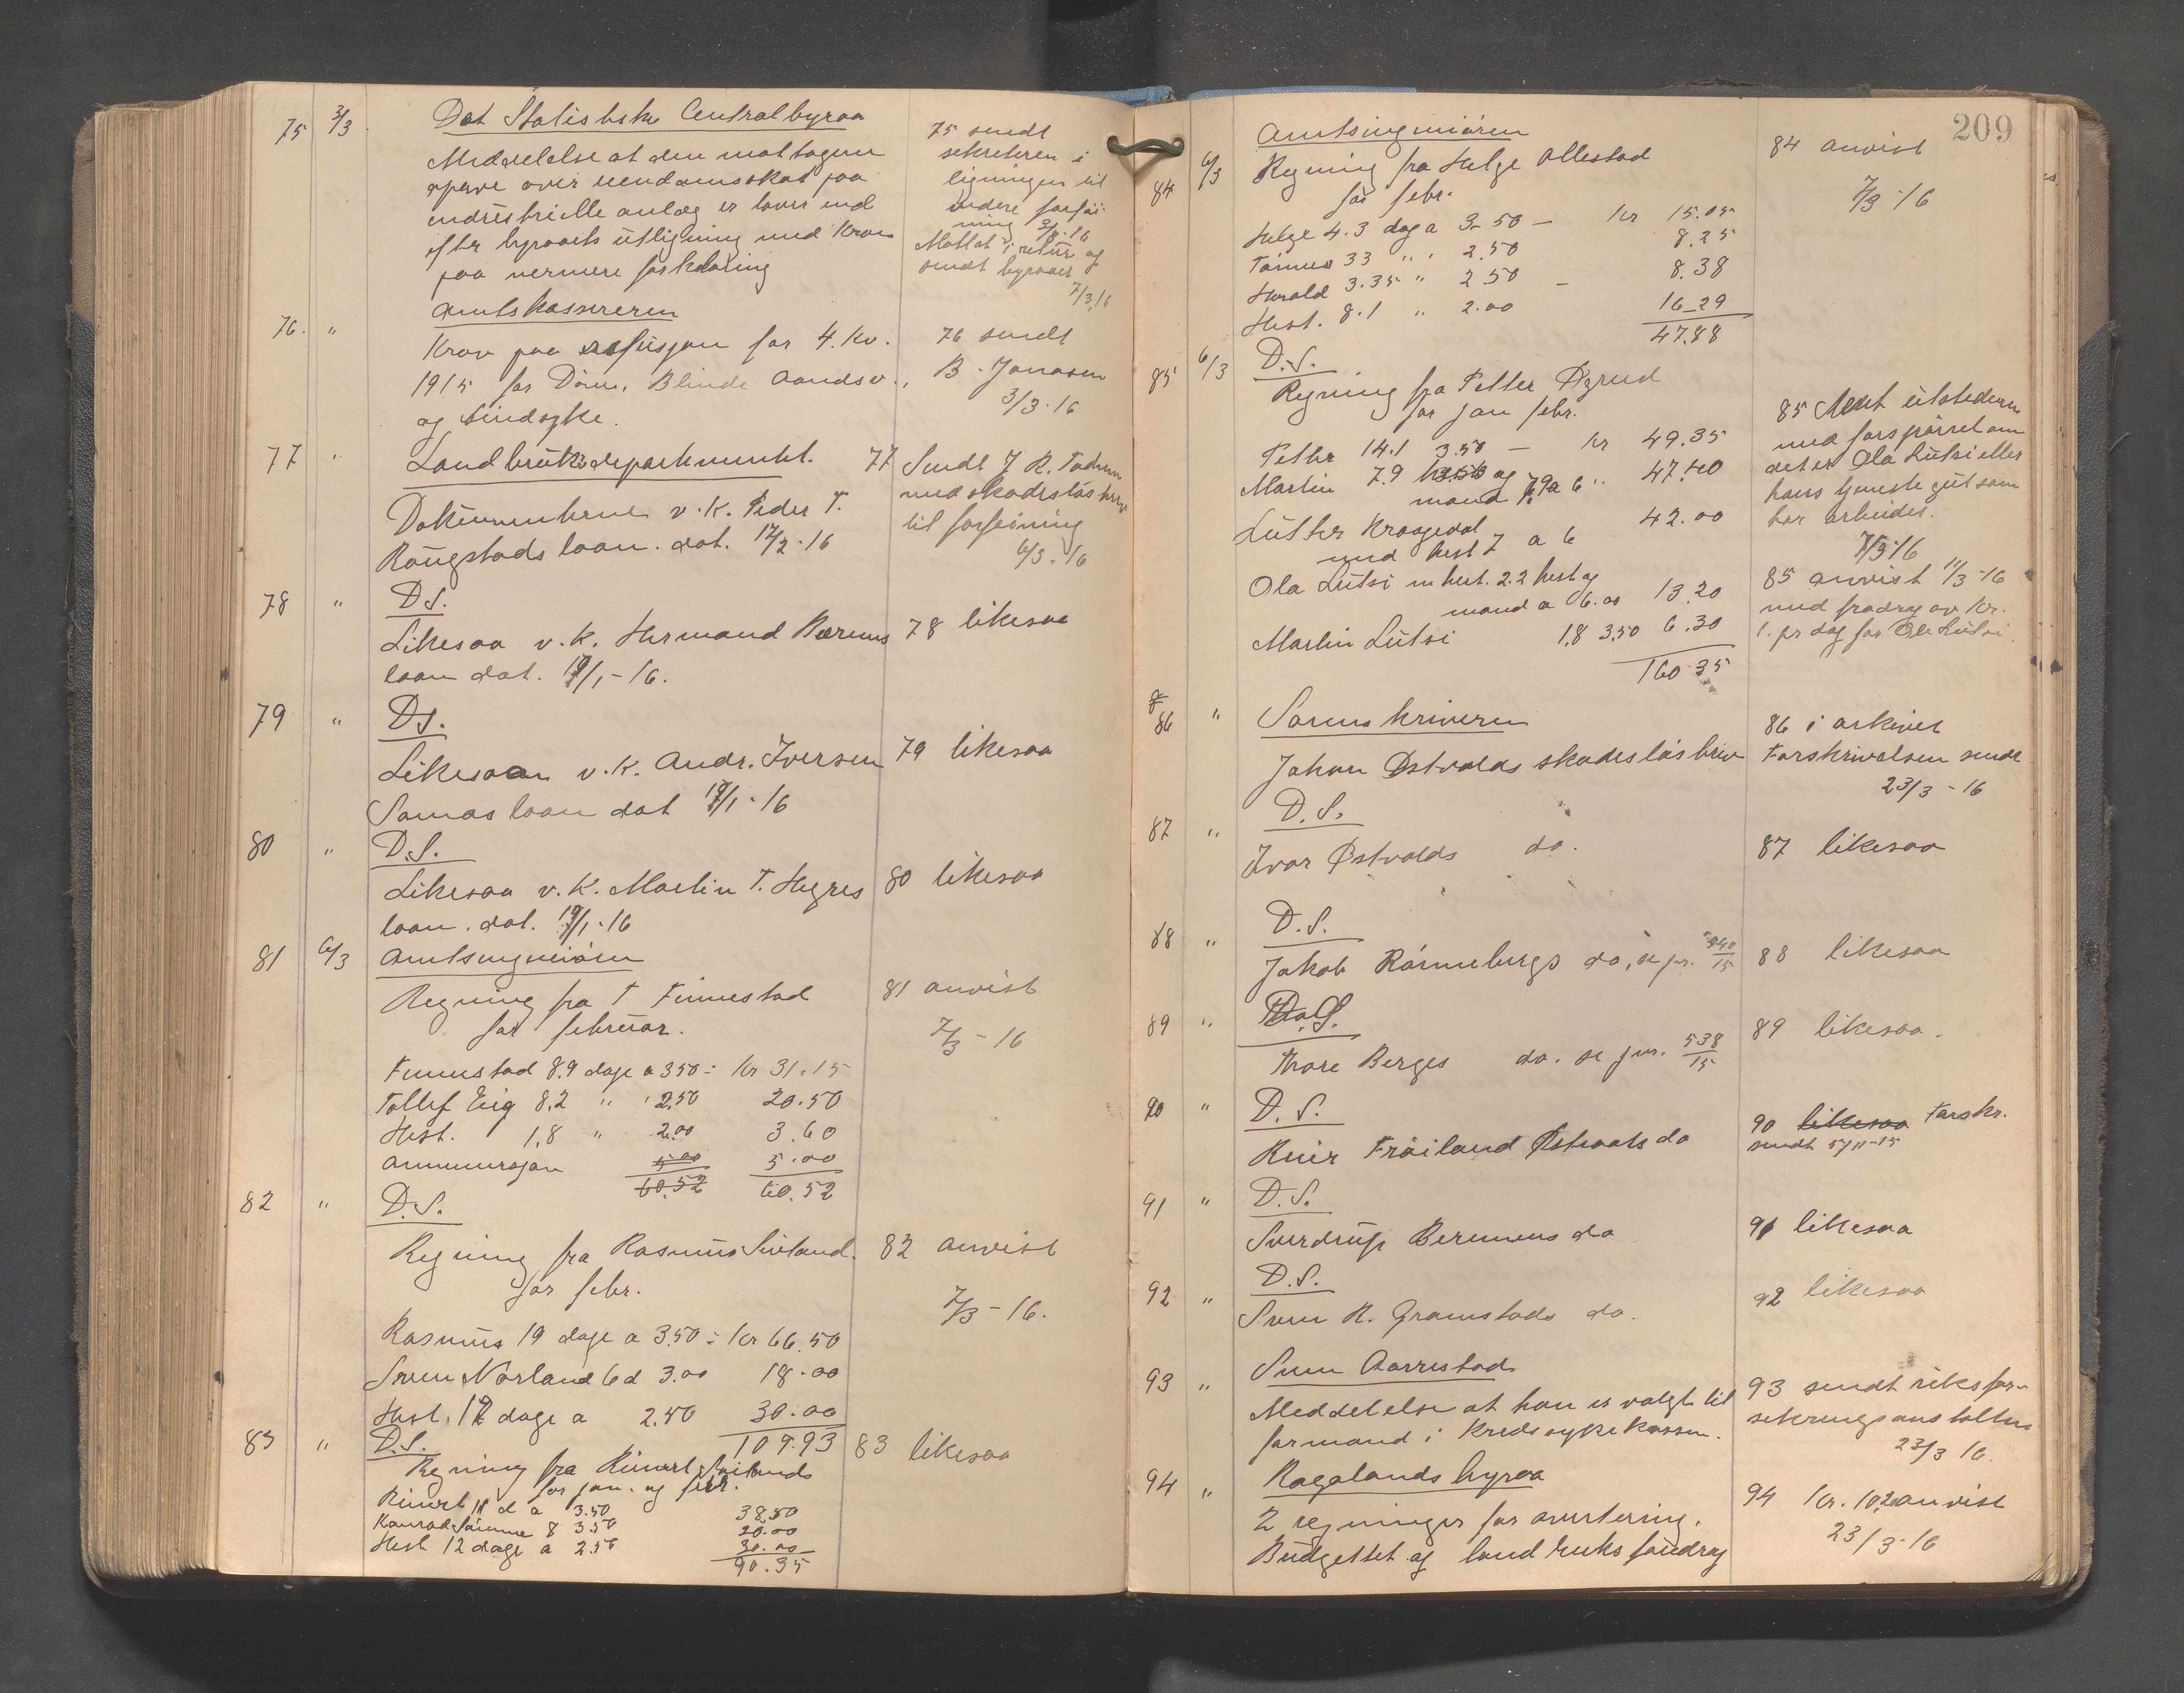 75 3/3 Det Statistiske Centralbyraa
Meddelelse at den mottagne
opgave over eiendomsskat paa
industrielle anlæg er lavere end
efter byraaets utligning med krav
paa nærmere forklaring
75 sendt
sekretæren i
ligningen til
videre forføi-
ning 3/3-16
Mottat i retur og
sendt byraaet
7/3 16
76. " Amtskassereren
Krav paa refusjon for 4. kv.
1915 for Døve, Blinde Aandsv.,
og Sindsyke.
76 sendt
B. Jonasen
3/3-16
77 " Landbruksdepartementet.
Dokumenterne v. k. Peder T.
Raugstads laan. dat. 17/2-16
77 Sendt J R.
med skadesløsbrev
til forføining
6/3.16
78 " D S.
Likesaa v. k. Hermand Bærems
laan dat. 19/1-16.
78 likesaa
79 " D S.
Likesaa v. k. Andr. Iversen
Somas laan dat 19/1-16
79 likesaa
80 " D.S.
Likesaa v. k. Martin T. Hegres
laan. dat. 19/1-16
80 likesaa
81 6/3 Amtsingeniøren
Regning fra T Finnestad
for februar.
Finnestad 8.9 dage a 350 = kr 31.15
Tollef Eig 8,2 " " 2,50 20.50
Hest. 1,8 " 2.00 3.60
Annonsjon 5.00 5.00
60.52 60.52
81 anvist
7/3-16
82 " D.S.
Regning fra Rasmus Sivland.
for febr.
Rasmus 19 dage a 3.50 = kr 66.50
Sven Norland 6 d 3.00 18.00
Hest. 12 dage a 2.50 30.00
109.93
82 anvist
7/3-16.
83 " D.S.
Regning fra Reinert Frøilands
for jan. og febr.
Reinert 11 d a 3.50 38,50
Konrad Sømme 8 3.50 20.00
Hest 12 dage a 2.50 30.00
90.35
83 likesaa
209
84 6/3 Amtsingeniøren
Regning fra Helge Ollestad
for febr.
Helge 4.3 dag a 3.50 — kr 15.05
Tønnes 33 " " 2.50 8.25
Harald 3.35 " 2.50 — 8.38
Hest. 8.1 " 2.00 16.29
47.88
84 anvist
7/3-16
85 6/3 D.S.
Regning fra Petter Øgreid
for jan febr.
Petter 14.1 3.50 — kr 49.35
Martin 7.9 hest og
mand 7.9 a 6 " 47.40
Luther Kraagedal
med hest 7 a 6 42.00
Ola Lutsi m hest. 2.2 hest og
mand a 6.00 13.20
Martin Lutsi 1,8 3.50 6.30
160.35
85 sendt utstederen
med forspørsel om
det er Ola Lutsi eller
hans tjeneste gut som
har arbeidet.
7/3-16
85 anvist 11/3-16
med fradrag av kr.
1. pr dag for Ole Lutsi.
86 " Sorenskriveren
Johan Østvolds skadesløsbrev
86 i arkivet
Forskrivelsen sendt
23/3-16
87 " D.S.
Ivar Østvolds do.
87 likesaa
88 " D.S.
Jakob Rønnebergs do, se jr. 540/15
88 likesaa
89 " D.S.
Thore Berges do. se jnr. 538/15
89 likesaa.
90 " D.S.
Reier Frøiland Østraats do
90 likesaa Forskr.
sendt 5/11-15
91 " D.S.
Sverdrup Beremens do
91 likesaa
92 " D.S.
Sven R. Gramstads do.
92 likesaa
93 " Sven Aarrestad
Meddelelse at han er valgt til
formand i Kredssykekassen.
93 sendt riksfor-
sikringsanstalten
23/3 16.
94 " Rogalands byraa
2 regninger for avertering.
Budgettet og landbruks foredrag
94 kr. 10,20 anvist
23/3-16